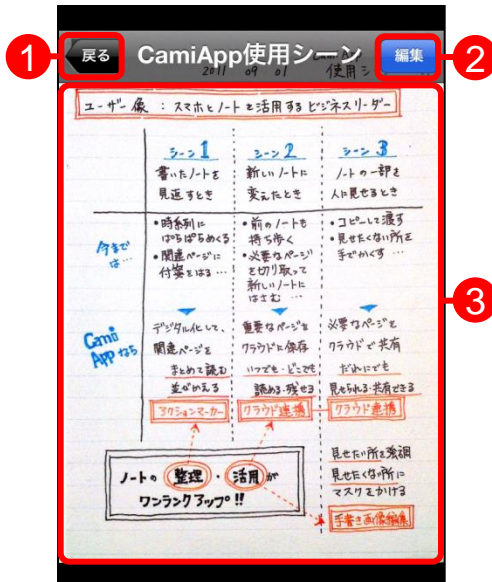 1
戻る
CamiApp使用シーン
編集
2
2011 09 01
使用シ
ユーザー像 : スマホとノートを活用するビジネスリーダー
シーン1
書いたノートを
見返すとき
シーン2
新しいノートに
変えたとき
シーン3
ノートの一部を
人に見せるとき
今まで
は…
・時系列に
ぱらぱらめくる
・関連ページに
付箋をはる…
・前のノートも
持ち歩く
・必要なページ
を切り取って
新しいノートに
はさむ…
・コピーして渡す
・見せたくない所を
手でかくす…
3
Cami
Appなら
デジタル化して、
関連ページを
まとめて読む
並びかえる
アクションマーカー
重要なページを
クラウドに保存
いつでも・どこでも
読める・残せる
クラウド連携
必要なページを
クラウドで共有
だれにでも
見せられる・共有できる
クラウド連携
ノートの整理・活用が
ワンランクアップ!!
見せたい所を強調
見せたくない所に
マスクをかける
手書き画像編集